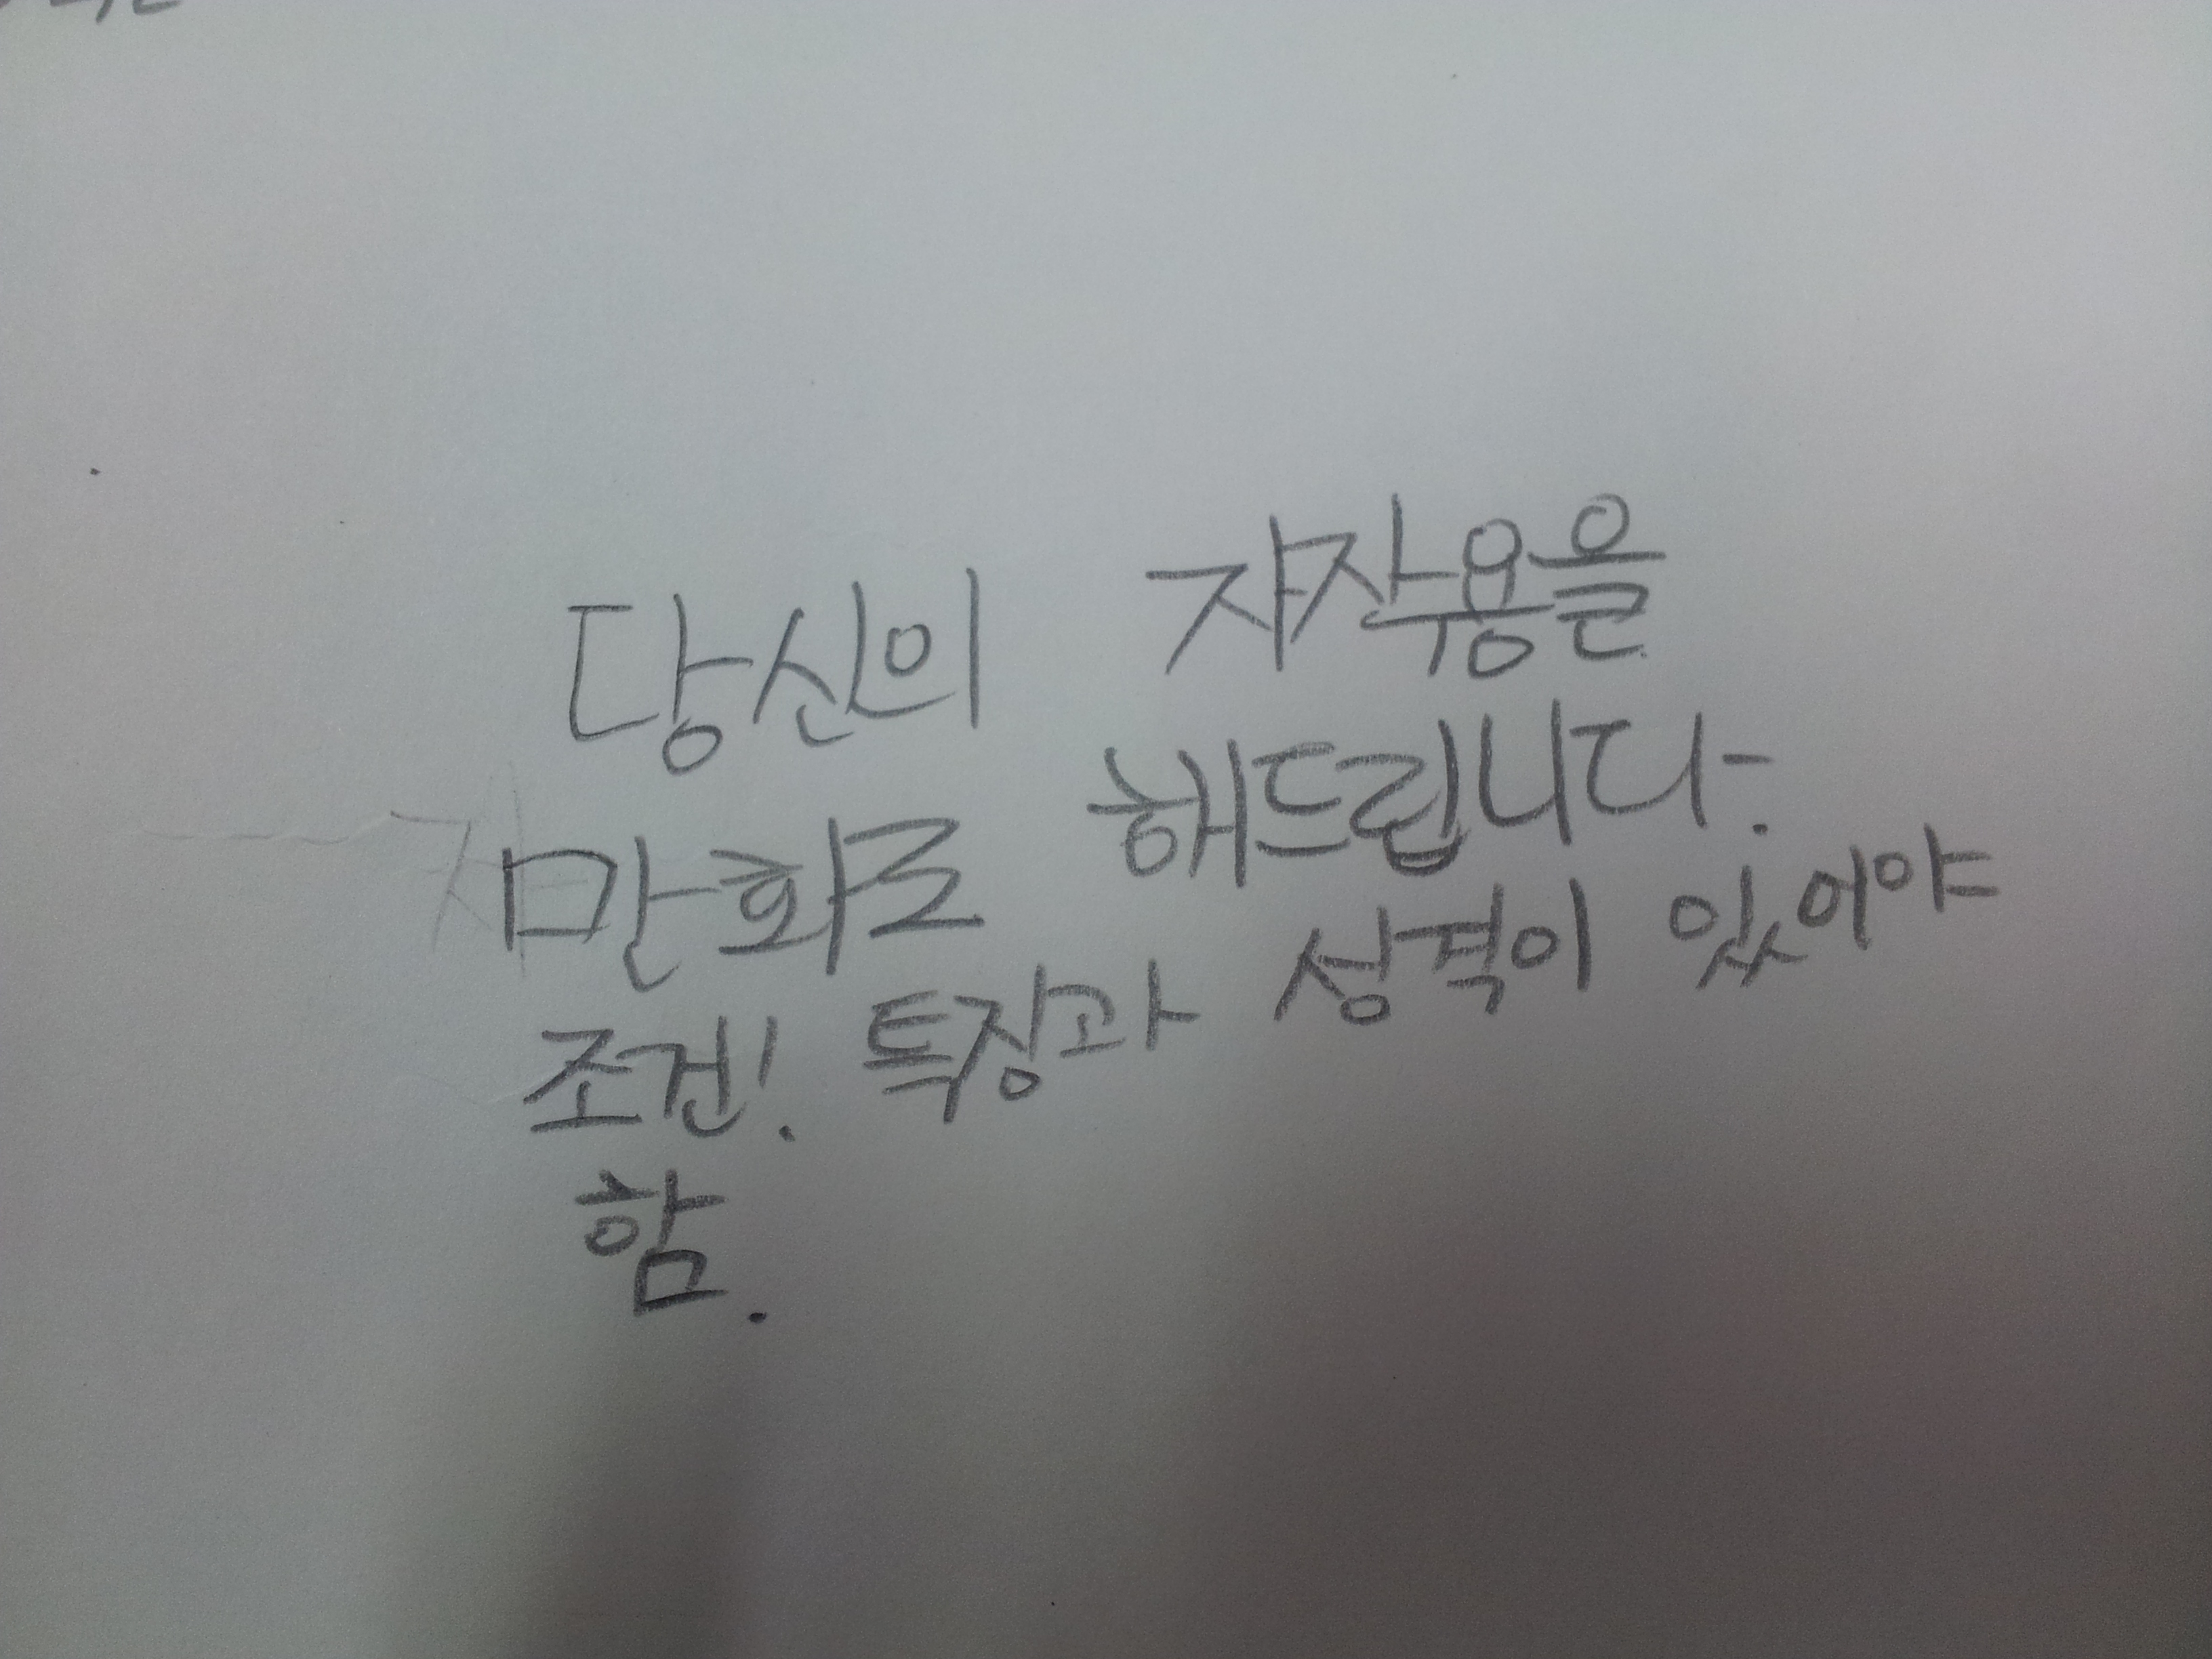 당신의 자작용을
만화로 해드립니다.
조건! 특징과 성격이 있어야
함.